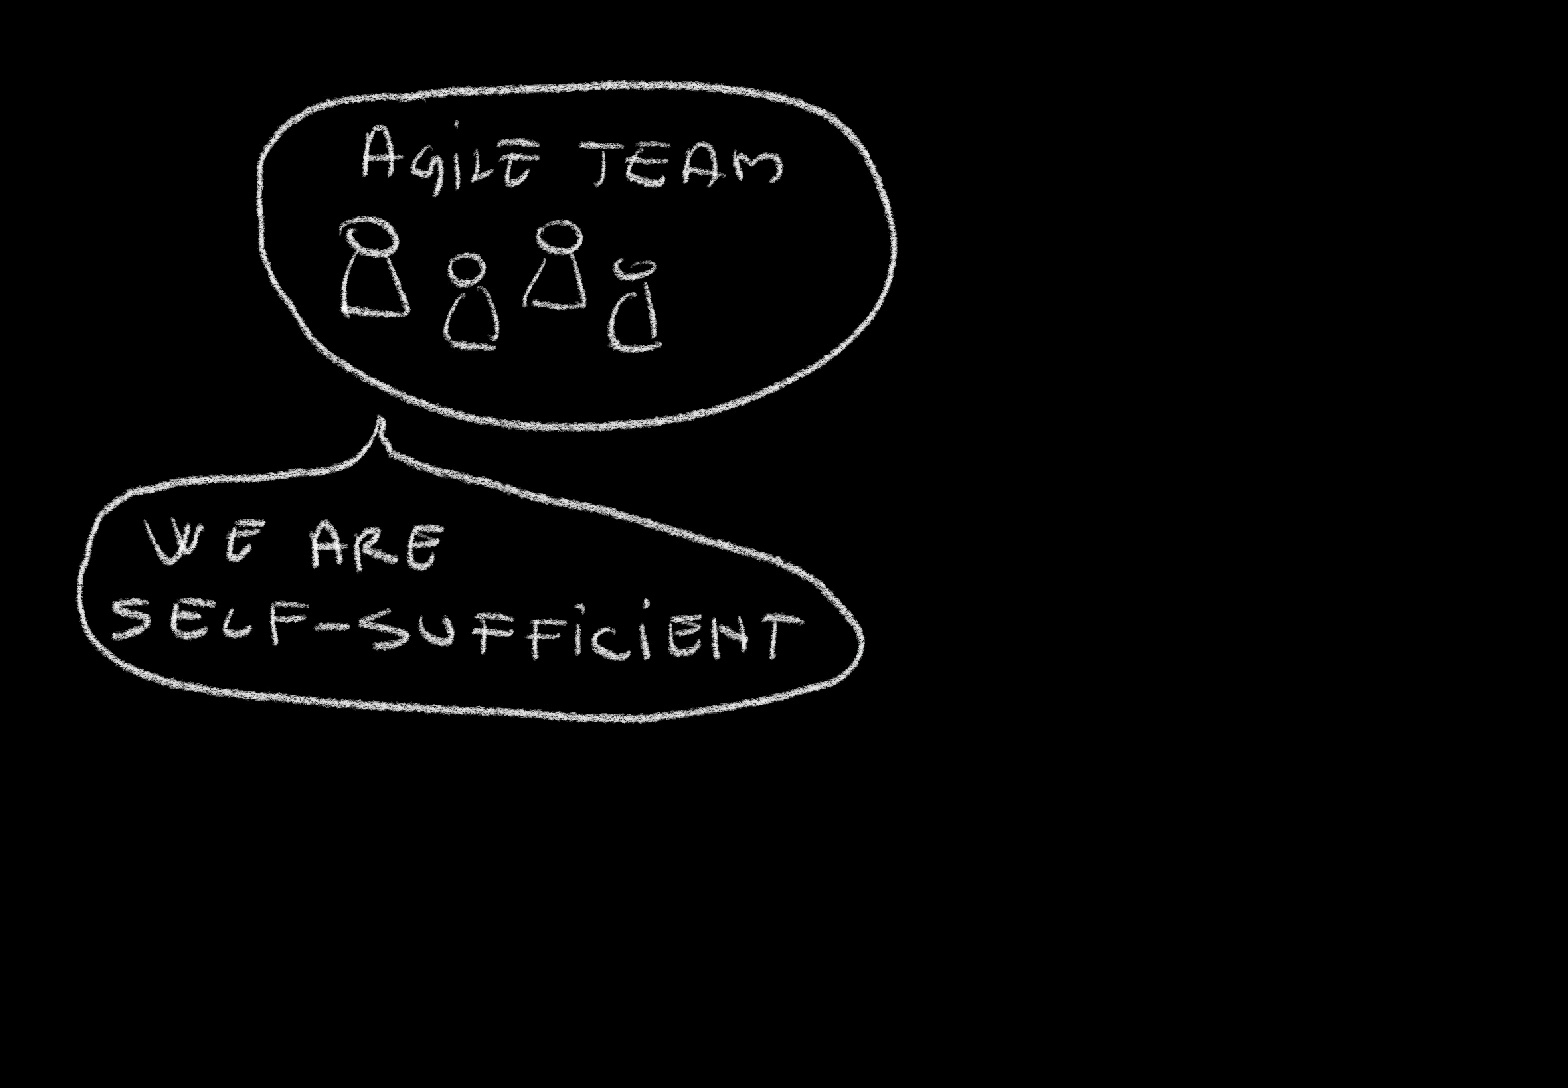 AGiLE TEAM
WE ARE
SELF-SUFFiCiENT